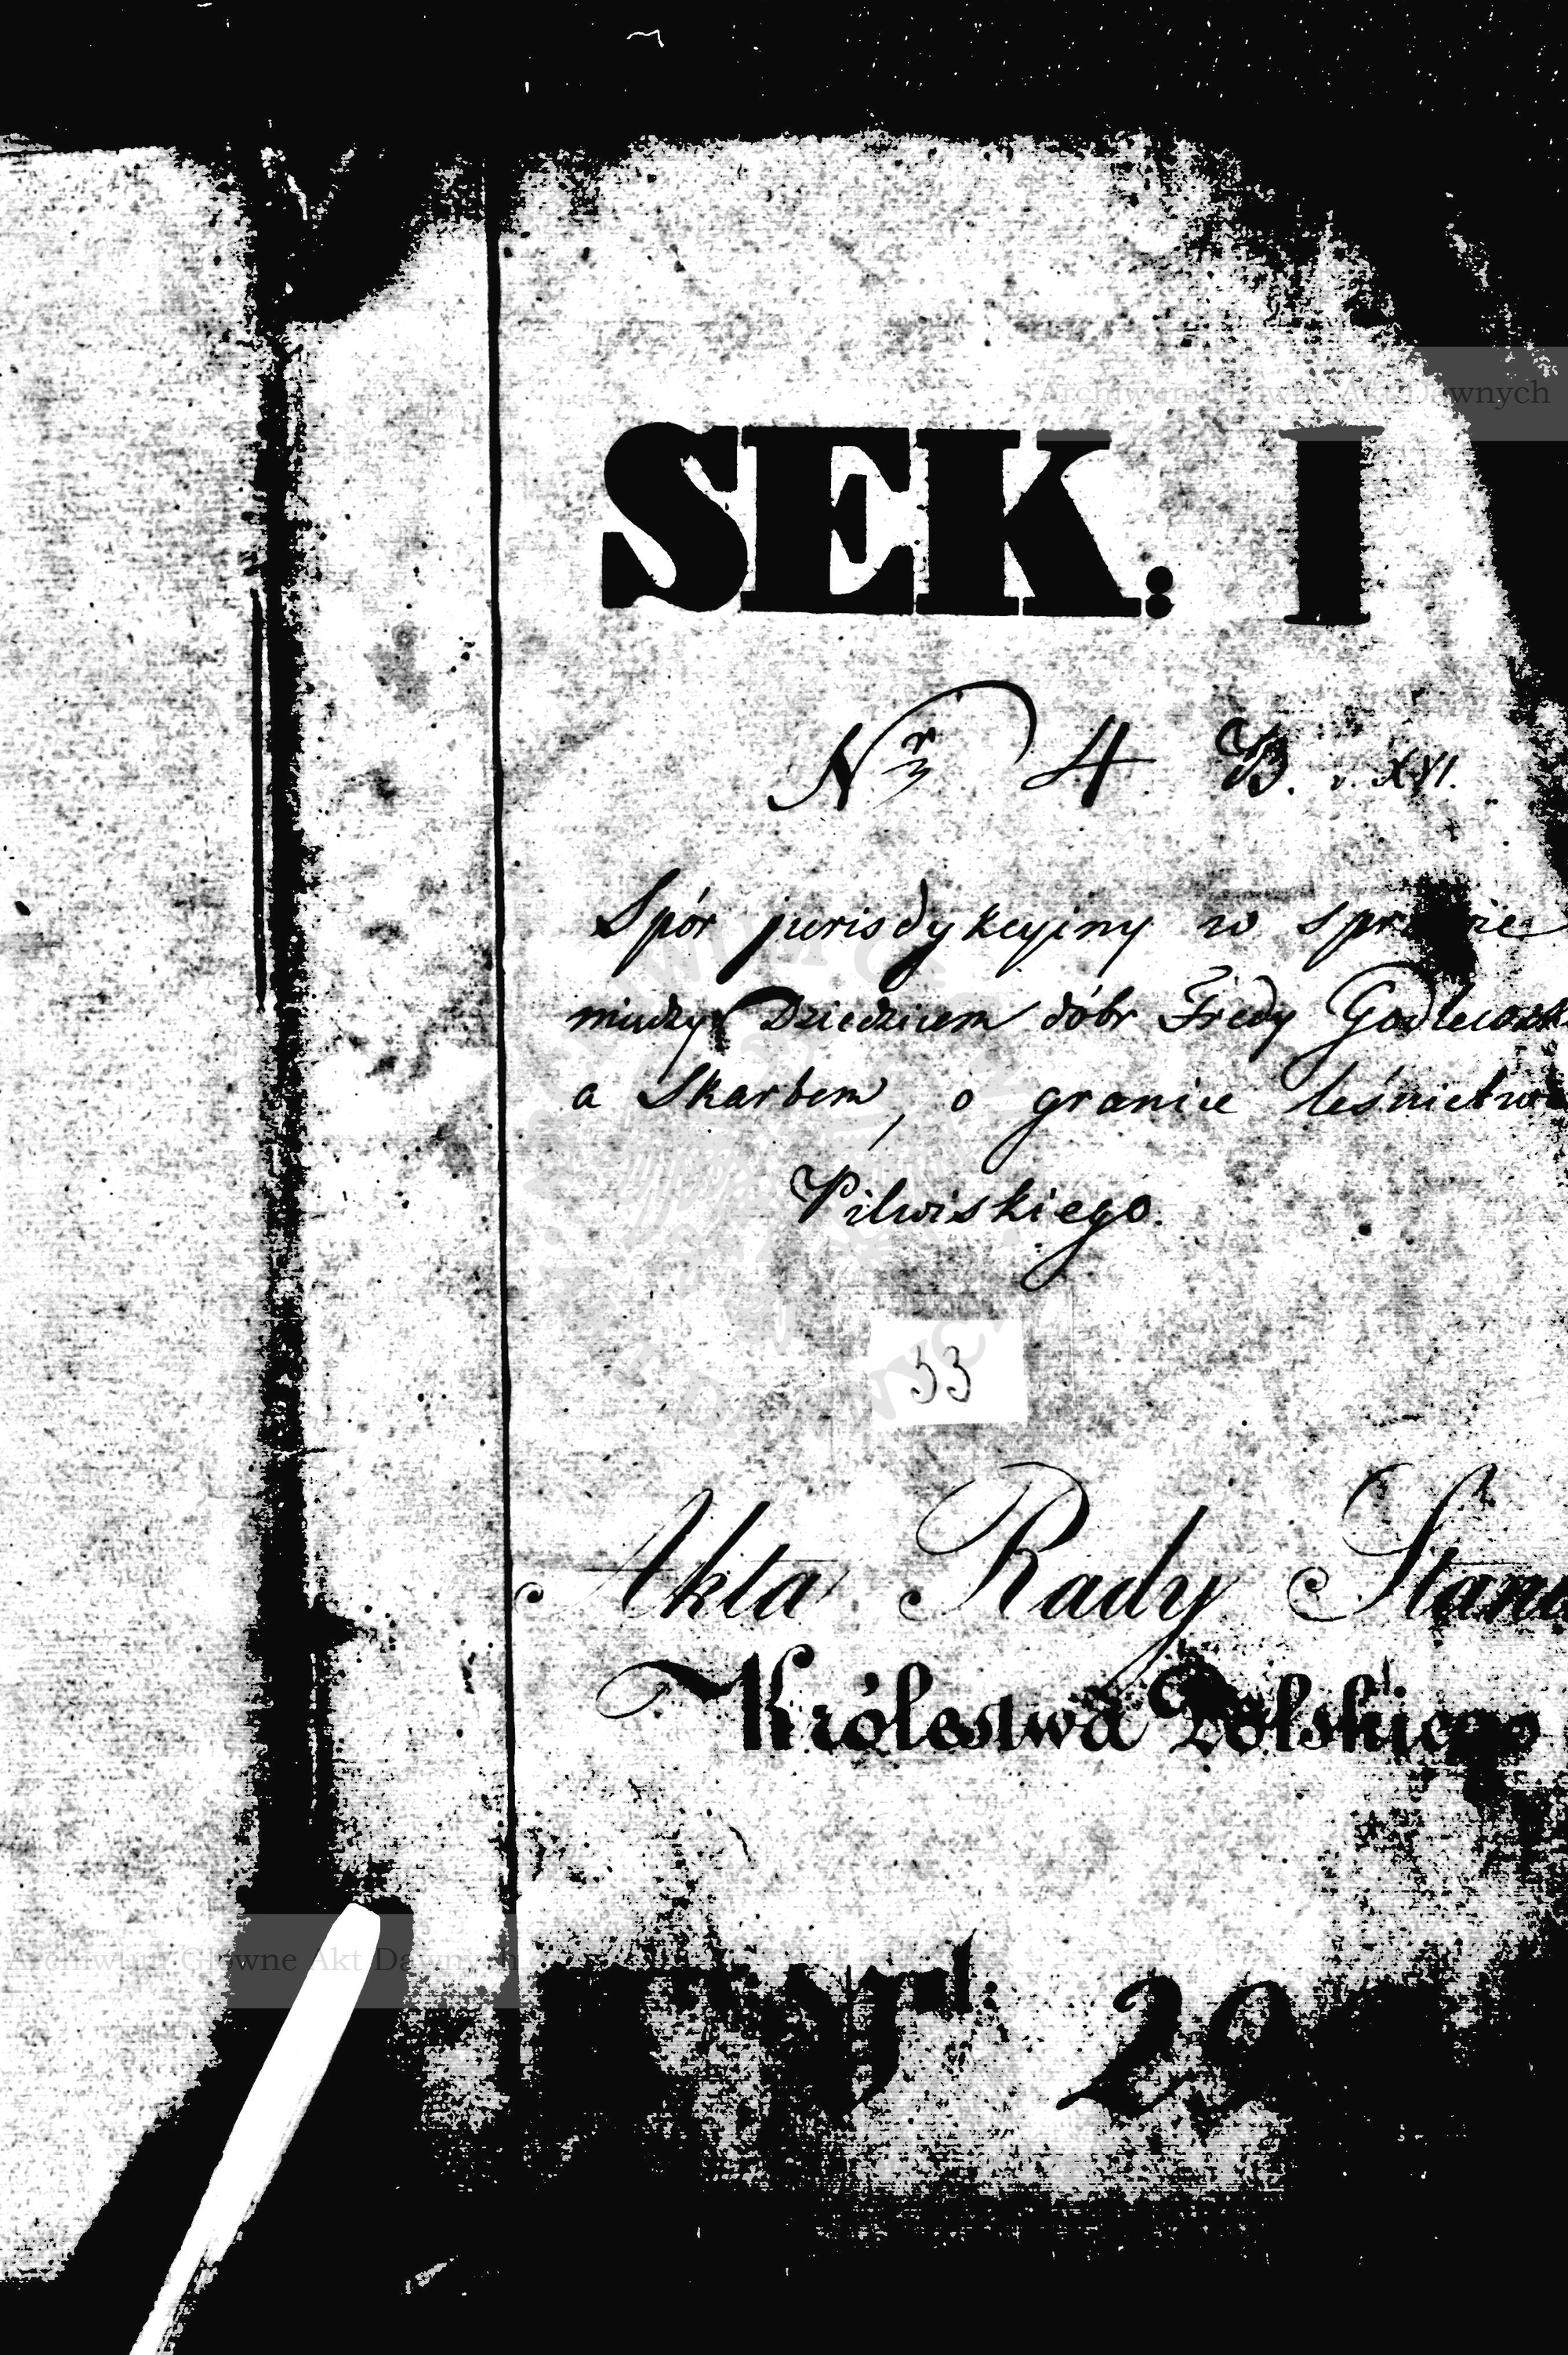 Archiwum Główne Akt Dawnych
SEK: I
Nr 4 B. v. XVI.
Spór jurisdykcyjny w sprawie
między Dziedzicem dóbr Fredy Godlewsk
a Skarbem, o granice leśnictwa
Pilwiskiego.
33
Akta Rady Stanu
Królestwa Polskiego
Archiwum Główne Akt Dawnych
29